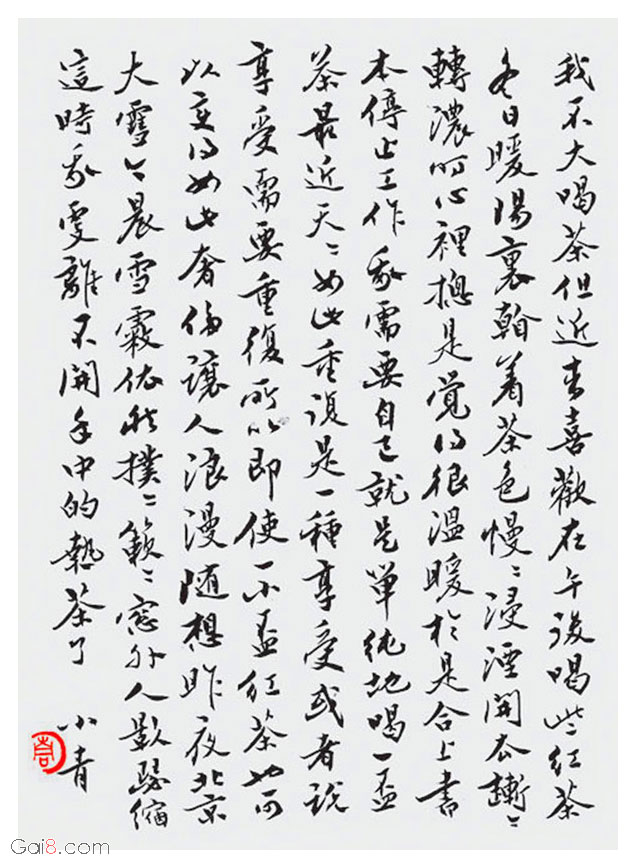 我不大喝茶但近来喜歡在午後喝些紅茶
冬日暖陽裏看着茶色慢慢浸湮開衣漸漸
轉濃时心裡摠是覚得很溫暖於是合上書
本停止工作我需要自己就是單純地喝一盃
茶最近天天如此重復是一種享受或者說
享受需要重復所以即使一小盃紅茶也可
以变得如此奢侈讓人浪漫随想昨夜北京
大雪今晨雪霰依然撲撲簌簌窓外人影瑟縮
這時我更離不開手中的熱茶了
小青
Gai8.com